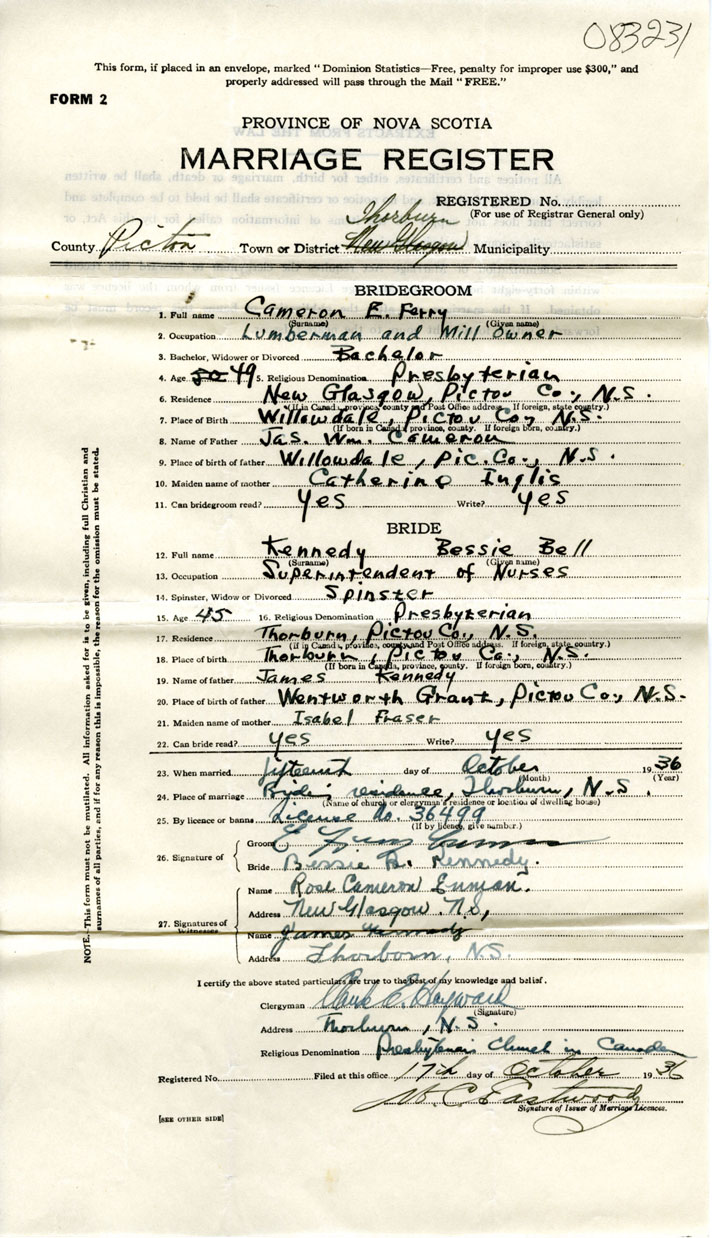 083231
This form, if placed in an envelope, marked "Dominion Statistics—Free, penalty for improper use $300," and
properly addressed will pass through the Mail "FREE."
FORM 2
PROVINCE OF NOVA SCOTIA
MARRIAGE REGISTER
REGISTERED No.
(For use of Registrar General only)
Thorburn
County Pictou Town or District New Glasgow Municipality
BRIDEGROOM
1. Full name Cameron E. Ferry
(Surname) (Given name)
2. Occupation Lumberman and Mill Owner
3. Bachelor, Widower or Divorced Bachelor
4. Age 50 49 5. Religious Denomination Presbyterian
6. Residence New Glasgow, Pictou Co., N.S.
(If in Canada, province, county and Post Office address. If foreign, state country.)
7. Place of Birth Willowdale, Pictou Co., N.S.
(If born in Canada, province, county. If foreign born, country.)
8. Name of Father Jas. Wm. Cameron
9. Place of birth of father Willowdale, Pic. Co., N.S.
10. Maiden name of mother Catherine Inglis
11. Can bridegroom read? Yes Write? Yes
BRIDE
12. Full name Kennedy Bessie Bell
(Surname) (Given name)
13. Occupation Superintendent of Nurses
14. Spinster, Widow or Divorced Spinster
15. Age 45 16. Religious Denomination Presbyterian
17. Residence Thorburn, Pictou Co., N.S.
(If in Canada, province, county and Post Office address. If foreign, state country.)
18. Place of birth Thorburn, Pictou Co., N.S.
(If born in Canada, province, county. If foreign born, country.)
19. Name of father James Kennedy
20. Place of birth of father Wentworth Grant, Pictou Co., N.S.
21. Maiden name of mother Isabel Fraser
22. Can bride read? Yes Write? Yes
23. When married fifteenth day of October 1936
(Month) (Year)
24. Place of marriage Bride's residence, Thorburn, N.S.
(Name of church or clergyman's residence or location of dwelling house)
25. By licence or banns License No. 36499
(If by licence, give number.)
26. Signature of
Groom E Cameron
Bride Bessie B. Kennedy.
27. Signatures of Witnesses
Name Rose Cameron
Address New Glasgow. N.S,
Name James Kennedy
Address Thorburn, NS.
I certify the above stated particulars are true to the best of my knowledge and belief.
Clergyman Hayward
(Signature)
Address Thorburn, N.S.
Religious Denomination Presbyterian Church in Canada
Registered No. Filed at this office 17th day of October 1936
W. C. Eastwood
Signature of Issuer of Marriage Licences.
[SEE OTHER SIDE]
NOTE. This form must not be mutilated. All information asked for is to be given, including full Christian and
surnames of all parties, and if for any reason this is impossible, the reason for the omission must be stated.